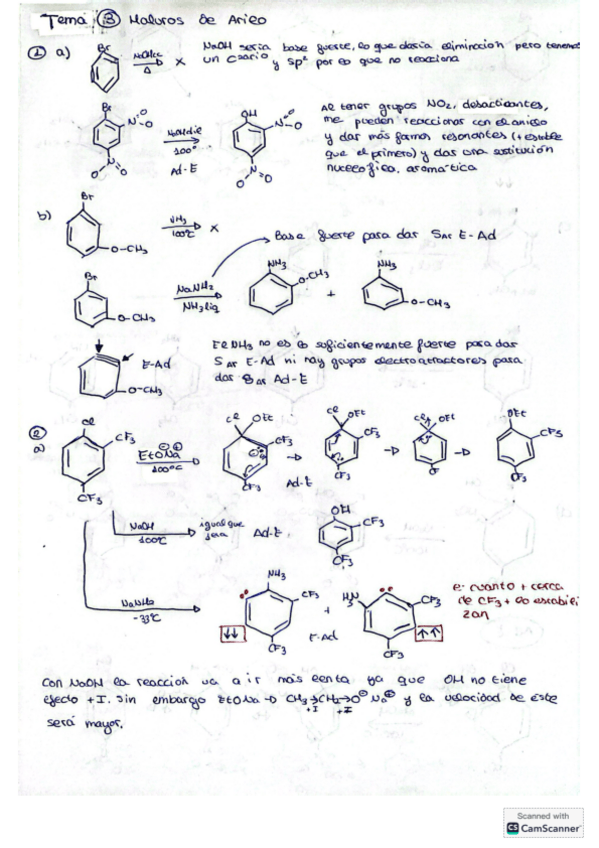 Tema ③ Haluros de Arilo
① a) Br NaOH cc Δ x NaOH sería base fuerte, lo que daría eliminación pero tenemos
un C y sp² por eso que no reacciona
Br NO₂ NaOH dil 100º Ad-E OH
Al tener grupos NO₂, desactivantes,
me pueden reaccionar con el anión
y dar más formas resonantes (+ estable
que el primero) y das una sustitución
nucleofílica aromática
b) Br O-CH₃ NH₃ 100ºC x
Base fuerte para dar SAr E-Ad
Br O-CH₃ NaNH₂ NH₃ liq NH₃ O-CH₃ + NH₃ O-CH₃
E-Ad O-CH₃
El NH₃ no es lo suficientemente fuerte para dar
SAr E-Ad ni hay grupos electroatractores para
dar SAr Ad-E
②
a) Cl CF₃ CF₃ EtO⊖Na⊕ 100ºC Cl OEt CF₃ CF₃ Ad-E Cl OEt CF₃ CF₃ Cl OEt OEt CF₃ CF₃
NaOH 100ºC igual que Ad-E OH CF₃ CF₃
NaNH₂ -33ºC NH₃ CF₃ CF₃ ↓↓ + E-Ad H₃N CF₃ CF₃ ↑↑
e⁻ cuanto + cerca
de CF₃ + lo estabili
zan
Con NaOH la reacción va a ir más lenta ya que OH no tiene
efecto +I. Sin embargo EtONa → CH₃→CH₂→O⊖ Na⊕ y la velocidad de este
+I +I
será mayor.
Scanned with
CS CamScanner